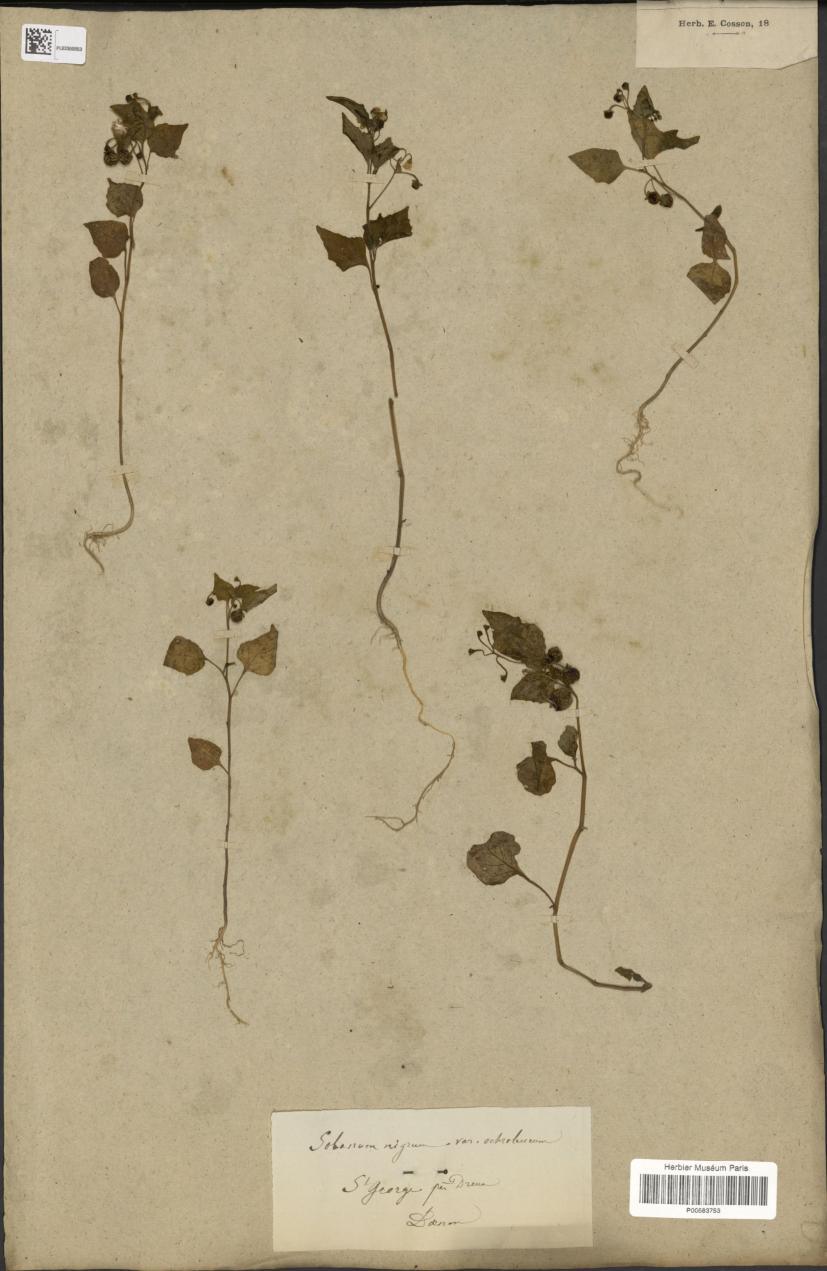 Herb. E. Cosson, 18
Solanum nigrum var. ochroleucum
St George Dreux
Dænen
Herbier Muséum Paris
P00583753